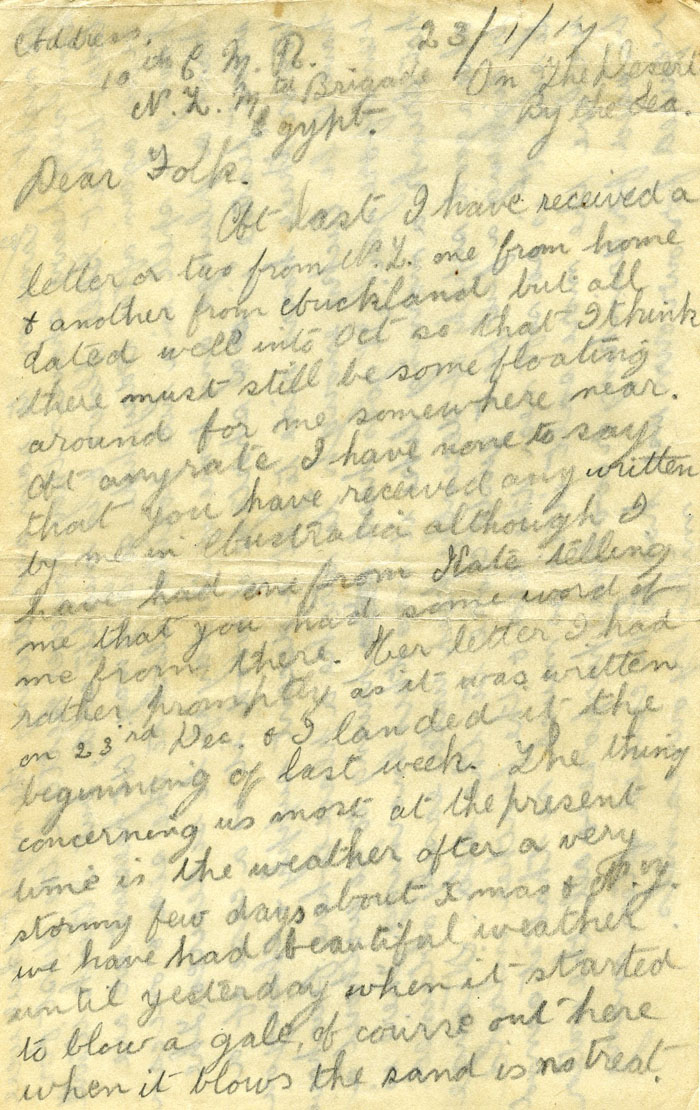 Address. 23/1/17
10th C. M. R. On The Desert
N. Z. Mtd Brigade By the Sea.
Egypt.
Dear Folk.
At last I have received a
letter or two from N.Z. one from home
& another from Auckland but all
dated well into Oct so that I think
there must still be some floating
around for me somewhere near.
At anyrate I have none to say
that you have received any written
by me in Australia although I
have had one from Kate telling
me that you had some word of
me from there. Her letter I had
rather promptly as it was written
on 23rd Dec. & I landed it the
beginning of last week. The thing
concerning us most at the present
time is the weather after a very
stormy few days about Xmas & N.Y.
we have had beautiful weather
until yesterday when it started
to blow a gale, of course out here
when it blows the sand is no treat.